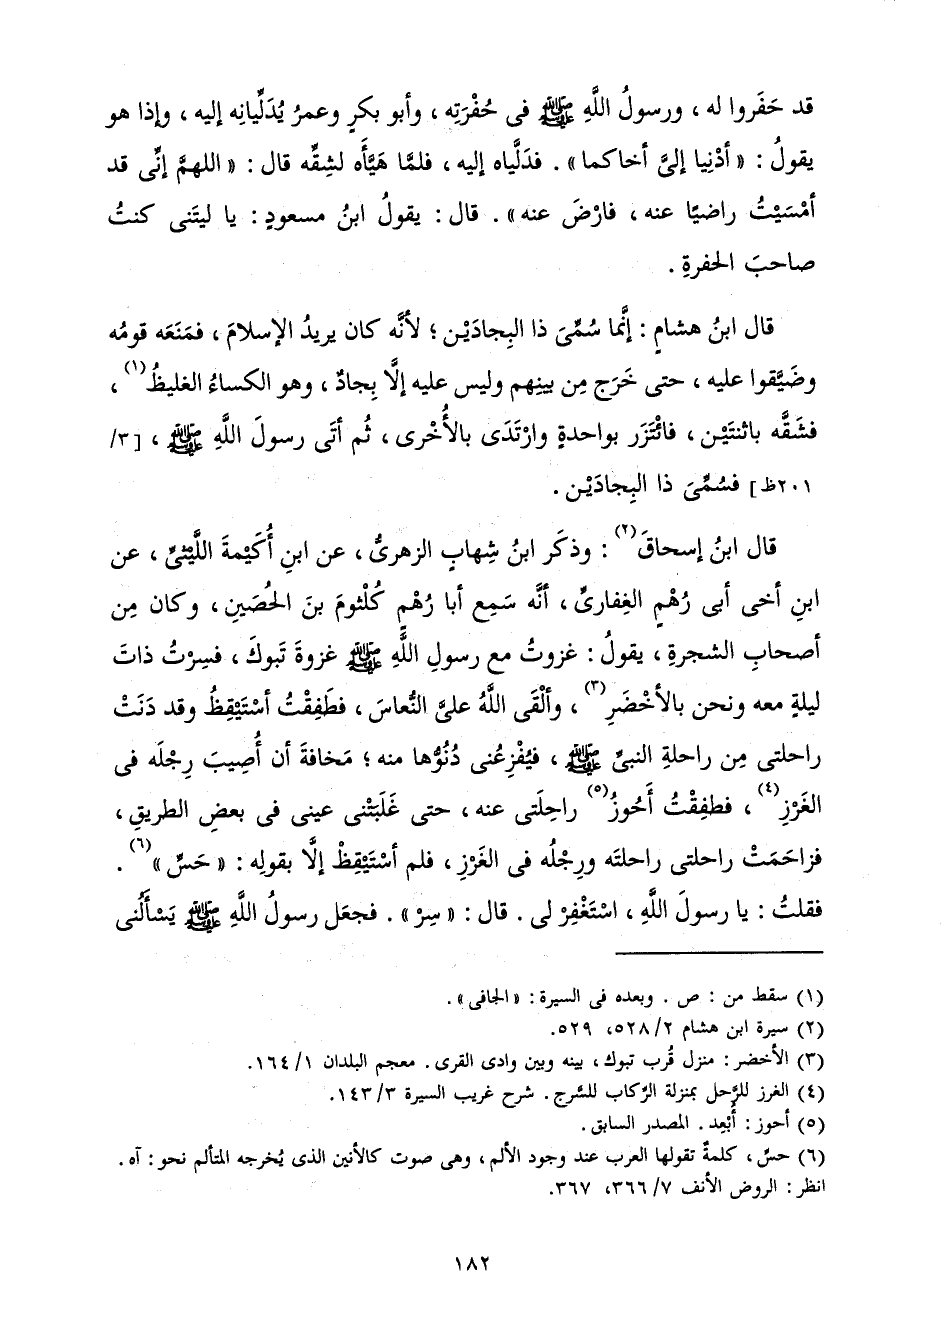 قد حَفَروا له ، ورسولُ اللَّهِ ﷺ فى حُفْرَتِه ، وأبو بكرٍ وعمرُ يُدَلِّيانِه إليه ، وإذا هو
يقولُ : « أدْنِيا إلىَّ أخاكما » . فدَلَّياه إليه ، فلمَّا هَيَّأَه لشِقِّه قال : « اللهمَّ إنِّى قد
أمْسَيْتُ راضيًا عنه ، فارْضَ عنه » . قال : يقولُ ابنُ مسعودٍ : يا ليتَنى كنتُ
صاحبَ الحفرةِ .
قال ابنُ هشامٍ : إنَّما سُمِّىَ ذا البِجادَيْن ؛ لأنَّه كان يريدُ الإسلامَ ، فمَنَعَه قومُه
وضَيَّقوا عليه ، حتى خَرَج مِن بينِهم وليس عليه إلَّا بِجادٌ ، وهو الكساءُ الغليظُ(١) ،
فشَقَّه باثنتَيْن ، فائْتَزَر بواحدةٍ وارْتَدَى بالأُخْرى ، ثُم أتَى رسولَ اللَّهِ ﷺ ، [٣/
٢٠١ظ] فسُمِّىَ ذا البِجادَيْن .
قال ابنُ إسحاقَ(٢) : وذكَر ابنُ شِهابٍ الزهرىُّ ، عن ابنِ أُكَيْمةَ اللَّيْثىِّ ، عن
ابنِ أخى أبى رُهْمٍ الغِفارىِّ ، أنَّه سَمِع أبا رُهْمٍ كُلْثومَ بنَ الحُصَينِ ، وكان مِن
أصحابِ الشجرةِ ، يقولُ : غزوتُ مع رسولِ اللَّهِ ﷺ غزوةَ تَبوكَ ، فسِرْتُ ذاتَ
ليلةٍ معه ونحن بالأخْضَرِ(٣) ، وألْقَى اللَّهُ علىَّ النُّعاسَ ، فطَفِقْتُ أسْتَيْقِظُ وقد دَنَتْ
راحلتى مِن راحلةِ النبىِّ ﷺ ، فيُفْزِعُنى دُنُوُّها منه ؛ مَخافةَ أن أُصِيبَ رِجْلَه فى
الغَرْزِ(٤) ، فطفِقْتُ أَحُوزُ(٥) راحِلَتى عنه ، حتى غَلَبَتْنى عينى فى بعضِ الطريقِ ،
فزاحَمَتْ راحلتى راحلتَه ورِجْلُه فى الغَرْزِ ، فلم أسْتَيْقِظْ إلَّا بقولِه : « حَسِّ »(٦) .
فقلتُ : يا رسولَ اللَّهِ ، اسْتَغْفِرْ لى . قال : « سِرْ » . فجعَل رسولُ اللَّهِ ﷺ يَسْأَلُنى
(١) سقط من : ص . وبعده فى السيرة : « الجافى » .
(٢) سيرة ابن هشام ٢/ ٥٢٨، ٥٢٩.
(٣) الأخضر : منزل قُرب تبوك ، بينه وبين وادى القرى . معجم البلدان ١/ ١٦٤.
(٤) الغرز للرَّحل بمنزلة الرِّكاب للسَّرج . شرح غريب السيرة ٣/ ١٤٣.
(٥) أحوز : أُبْعِد . المصدر السابق .
(٦) حسِّ ، كلمةٌ تقولها العرب عند وجود الألم ، وهى صوت كالأنين الذى يُخرجه المتألم نحو : آه .
انظر : الروض الأنف ٧/ ٣٦٦، ٣٦٧.
١٨٢